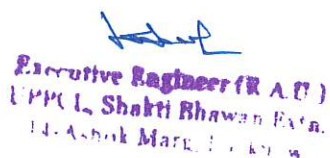 Executive Engineer (R.A.U.)
UPPCL, Shakti Bhawan Extn.
14-Ashok Marg, Lucknow